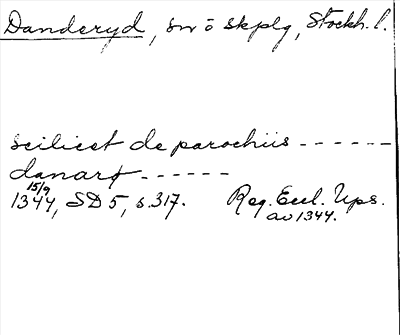 Danderyd, sn ö skplg, Stockh. l.
scilicet de parochiis ------
danarꝭ ------
15/9
1344, SD 5, s. 317. Reg. Eccl. Ups.
av 1344.